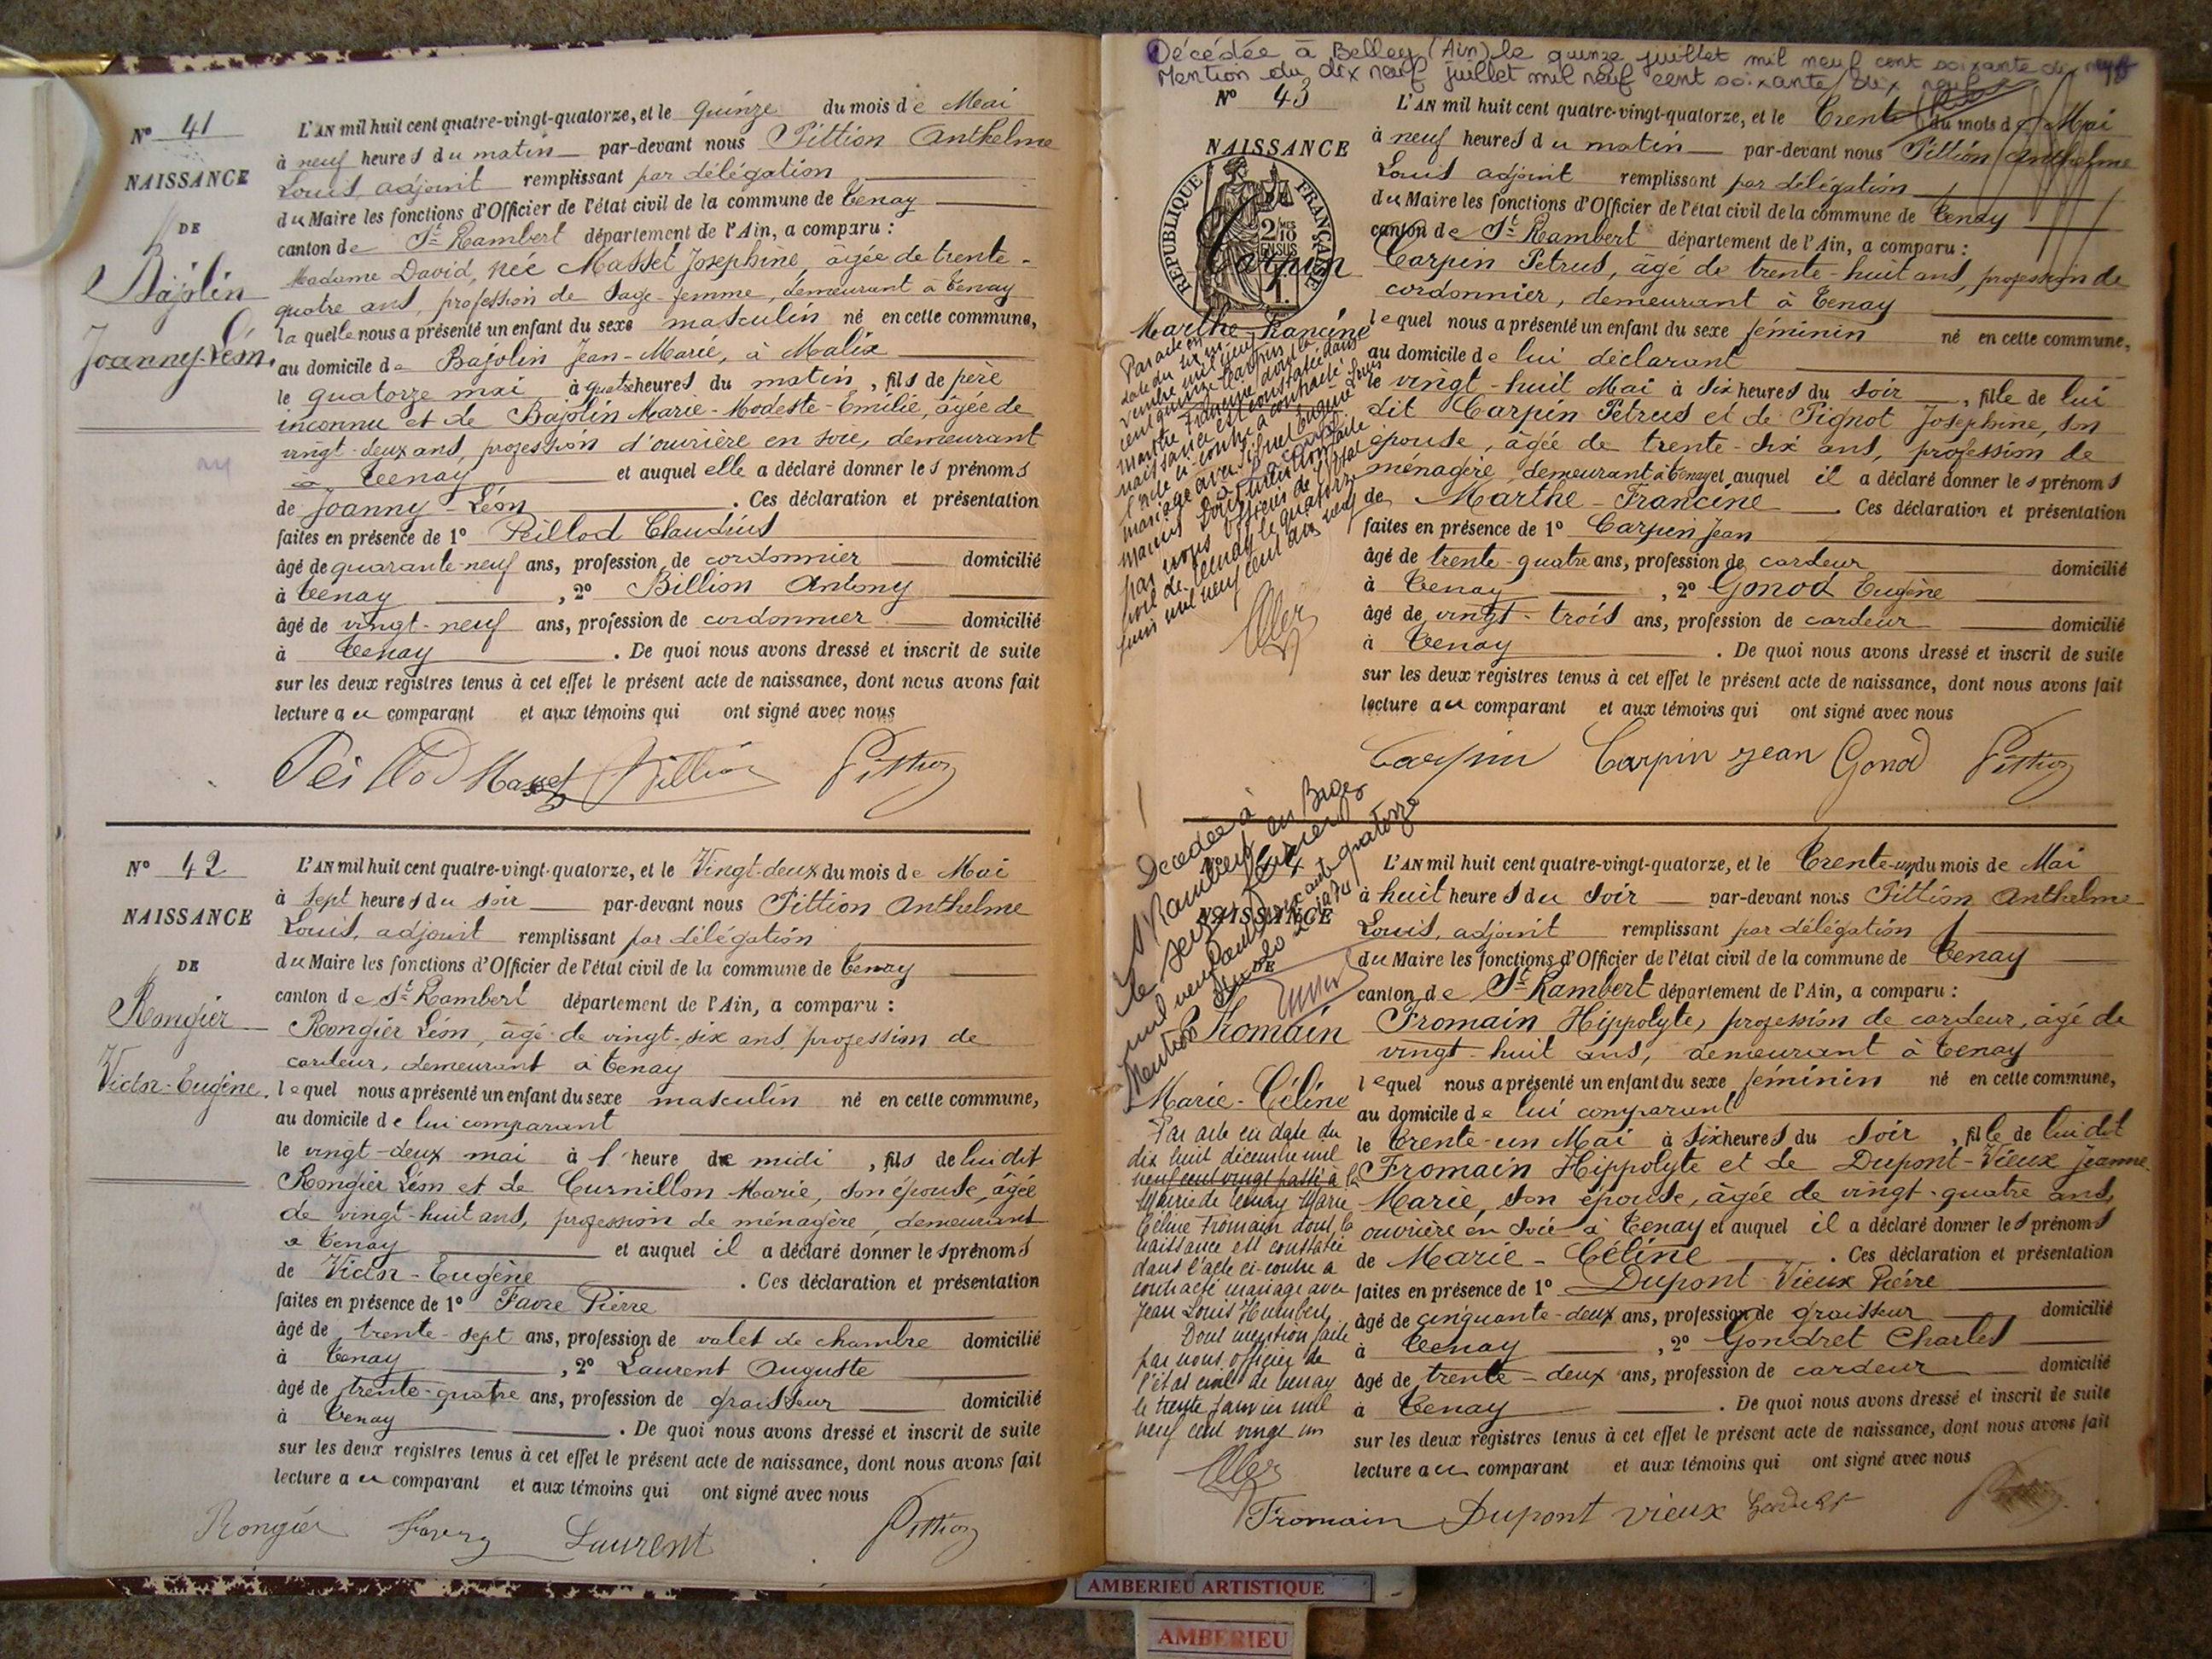 N° 41
NAISSANCE
DE
Bajolin
Joanny-Léon.
L'AN mil huit cent quatre-vingt-quatorze, et le quinze du mois de Mai
à neuf heures du matin par-devant nous Pittion Anthelme
Louis, adjoint remplissant par délégation
du Maire les fonctions d'Officier de l'état civil de la commune de Tenay
canton de St Rambert département de l'Ain, a comparu :
Madame David, née Masset Josephine, âgée de trente-
quatre ans, profession de Sage-femme, demeurant à Tenay
la quelle nous a présenté un enfant du sexe masculin né en cette commune,
au domicile de Bajolin Jean-Marie, à Malix
le quatorze mai à quatre heures du matin, fils de père
inconnu et de Bajolin Marie-Modeste-Emilie, âgée de
vingt-deux ans, profession d'ouvrière en soie, demeurant
à Tenay et auquel elle a déclaré donner les prénoms
de Joanny-Léon. Ces déclaration et présentation
faites en présence de 1° Peillod Claudius
âgé de quarante-neuf ans, profession de cordonnier domicilié
à Tenay, 2° Billion Antony
âgé de vingt-neuf ans, profession de cordonnier domicilié
à Tenay. De quoi nous avons dressé et inscrit de suite
sur les deux registres tenus à cet effet le présent acte de naissance, dont nous avons fait
lecture au comparant et aux témoins qui ont signé avec nous
Peillod Masset Billion Pittion
N° 42
NAISSANCE
DE
Rongier
Victor-Eugène.
L'AN mil huit cent quatre-vingt-quatorze, et le Vingt-deux du mois de Mai
à sept heures du soir par-devant nous Pittion Anthelme
Louis, adjoint remplissant par délégation
du Maire les fonctions d'Officier de l'état civil de la commune de Tenay
canton de St Rambert département de l'Ain, a comparu :
Rongier Léon, âgé de vingt-six ans, profession de
cardeur, demeurant à Tenay
lequel nous a présenté un enfant du sexe masculin né en cette commune,
au domicile de lui comparant
le vingt-deux mai à l'heure de midi, fils de lui dit
Rongier Léon et de Curnillon Marie, son épouse, âgée
de vingt-huit ans, profession de ménagère, demeurant
à Tenay et auquel il a déclaré donner les prénoms
de Victor-Eugène. Ces déclaration et présentation
faites en présence de 1° Favre Pierre
âgé de trente-sept ans, profession de valet de chambre domicilié
à Tenay, 2° Laurent Auguste
âgé de trente-quatre ans, profession de graisseur domicilié
à Tenay. De quoi nous avons dressé et inscrit de suite
sur les deux registres tenus à cet effet le présent acte de naissance, dont nous avons fait
lecture au comparant et aux témoins qui ont signé avec nous
Rongier Favre Laurent Pittion
Décédée à Belley (Ain) le quinze juillet mil neuf cent soixante dix neuf
Mention du dix neuf juillet mil neuf cent soixante dix neuf
N° 43
NAISSANCE
REPUBLIQUE FRANÇAISE
2/10 MES
EN SUS
1.
Carpin
Marthe-Francine
Par acte en
date du
Marthe Francine dont la
naissance est constatée dans
l'acte ci-contre a contracté
mariage avec
par nous officier de l'état
civil de Tenay le quatorze
juin mil neuf cent dix neuf
L'AN mil huit cent quatre-vingt-quatorze, et le Trente du mois de Mai
à neuf heures du matin par-devant nous Pittion Anthelme
Louis adjoint remplissant par délégation
du Maire les fonctions d'Officier de l'état civil de la commune de Tenay
canton de St Rambert département de l'Ain, a comparu :
Carpin Petrus, âgé de trente-huit ans, profession de
cordonnier, demeurant à Tenay
lequel nous a présenté un enfant du sexe féminin né en cette commune,
au domicile de lui déclarant
le vingt-huit Mai à six heures du soir, fille de lui
dit Carpin Petrus et de Pignot Josephine, son
épouse, âgée de trente-six ans, profession de
ménagère, demeurant à Tenay et auquel il a déclaré donner les prénoms
de Marthe-Francine. Ces déclaration et présentation
faites en présence de 1° Carpin Jean
âgé de trente-quatre ans, profession de cardeur domicilié
à Tenay, 2° Gonod Eugène
âgé de vingt-trois ans, profession de cardeur domicilié
à Tenay. De quoi nous avons dressé et inscrit de suite
sur les deux registres tenus à cet effet le présent acte de naissance, dont nous avons fait
lecture au comparant et aux témoins qui ont signé avec nous
Carpin Carpin Jean Gonod Pittion
Décédée à
St Rambert en Bugey
le seize février
mil neuf cent soixante quatorze
Mention
NAISSANCE
DE
Fromain
Marie-Céline
Par acte en date du
dix huit décembre mil
neuf cent vingt passé à la
Mairie de Tenay Marie
Céline Fromain dont la
naissance est constatée
dans l'acte ci-contre a
contracté mariage avec
Jean Louis Humbert
Dont mention faite
par nous officier de
l'état civil de Tenay
le trente janvier mil
neuf cent vingt un
L'AN mil huit cent quatre-vingt-quatorze, et le Trente-un du mois de Mai
à huit heures du soir par-devant nous Pittion Anthelme
Louis, adjoint remplissant par délégation
du Maire les fonctions d'Officier de l'état civil de la commune de Tenay
canton de St Rambert département de l'Ain, a comparu :
Fromain Hippolyte, profession de cardeur, âgé de
vingt-huit ans, demeurant à Tenay
lequel nous a présenté un enfant du sexe féminin né en cette commune,
au domicile de lui comparant
le trente-un Mai à six heures du soir, fille de lui dit
Fromain Hippolyte et de Dupont-Vieux Jeanne
Marie, son épouse, âgée de vingt-quatre ans,
ouvrière en soie à Tenay et auquel il a déclaré donner les prénoms
de Marie-Céline. Ces déclaration et présentation
faites en présence de 1° Dupont-Vieux Pierre
âgé de cinquante-deux ans, profession de graisseur domicilié
à Tenay, 2° Gondret Charles
âgé de trente-deux ans, profession de cardeur domicilié
à Tenay. De quoi nous avons dressé et inscrit de suite
sur les deux registres tenus à cet effet le présent acte de naissance, dont nous avons fait
lecture au comparant et aux témoins qui ont signé avec nous
Fromain Dupont vieux Gondret Pittion
AMBERIEU ARTISTIQUE
AMBERIEU